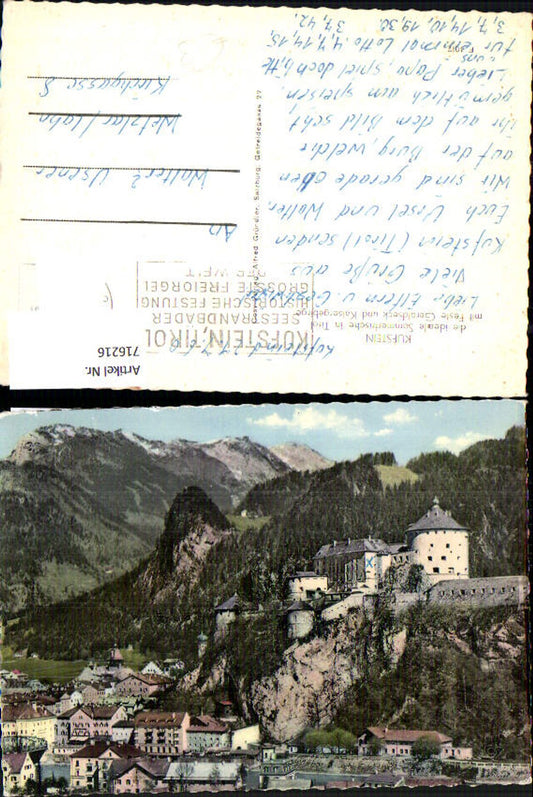 KUFSTEIN
die ideale Sommerfrische in Tirol
mit Feste Geroldseck und Kaisergebirge
Kufstein, d. 27.7.60
Liebe Eltern u. Geschwister
Viele Grüße aus
Kufstein (Tirol) senden
Euch Ursel und Walter.
Wir sind gerade oben
auf der Burg, welche
Ihr auf dem Bild seht
gemütlich am speisen.
Lieber Papa, spiel doch bitte
für uns einmal Lotto: 4, 7, 14, 15,
37, 42.
3, 7, 14, 10, 19, 30.
KUFSTEIN, TIROL
SEESTRANDBÄDER
HISTORISCHE FESTUNG
GRÖSSTE FREIORGEL
DER WELT
Alfred Gründler, Salzburg, Getreidegasse 22
An
Walter Usener
Wetzlar/Lahn
Kirchgasse 8
Artikel Nr.
716216
X